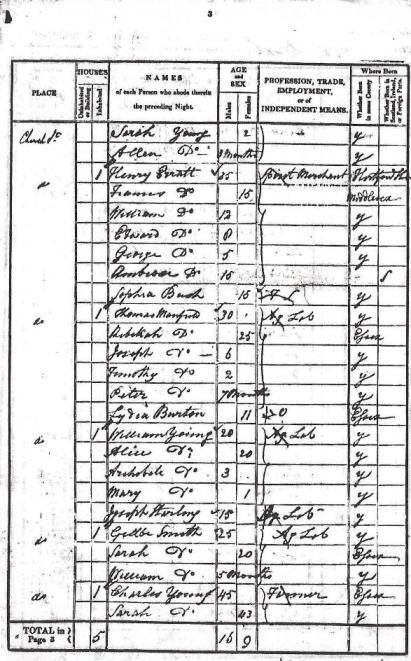 3
PLACE
HOUSES
Uninhabited or Building
Inhabited
NAMES
of each Person who abode therein the preceding Night.
AGE and SEX
Males
Females
PROFESSION, TRADE, EMPLOYMENT, or of INDEPENDENT MEANS.
Where Born
Whether Born in same County
Whether Born in Scotland, Ireland, or Foreign Parts
Church St Sarah Young 2 y
Allen Do 3 Months y
do 1 Henry 35 Merchant
Frances Do 15 Middlesex
William Do 12 y
Edward Do 8 y
George Do 5 y
Do 15 S
Sophia Bush 15 F S y
do 1 Thomas 30 Ag Lab y
Rebekah Do 25 Essex
Joseph Do 6 y
Timothy Do 2 y
Peter Do 7 Months y
Lydia Burton 11 Essex
do 1 William Young 20 Ag Lab y
Alice Do 20 y
Do 3 y
Mary Do 1 y
Joseph 15 Ag Lab y
do 1 Smith 25 Ag Lab y
Sarah Do 20 Essex
William Do 5 Months y
do 1 Charles Young 45 Farmer Essex
Sarah Do 43 y
TOTAL in Page 3 5 16 9